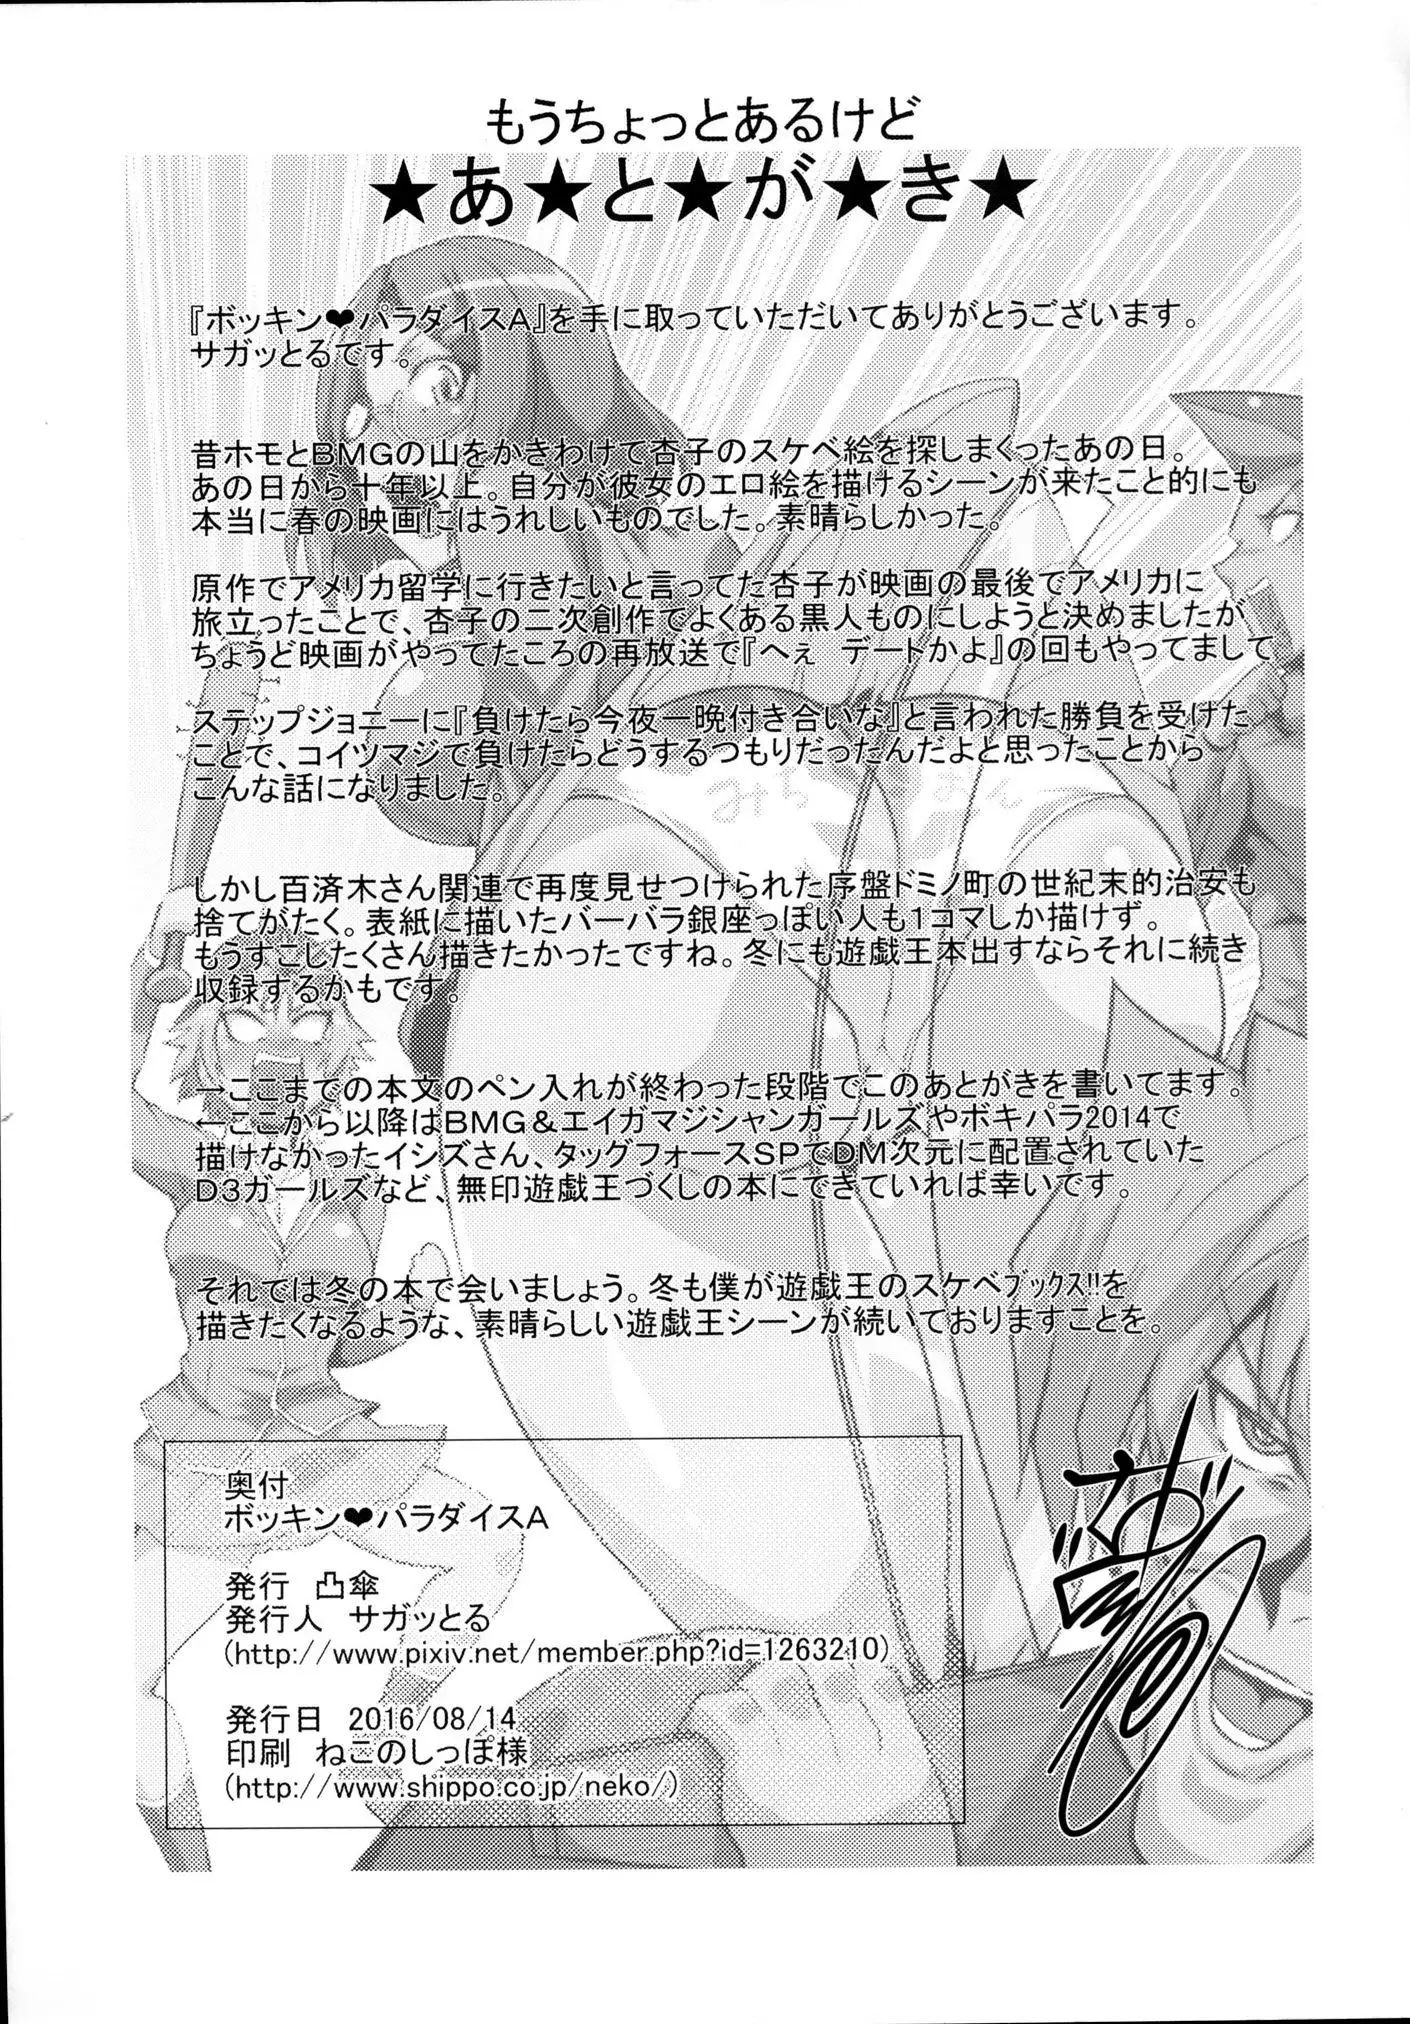 もうちょっとあるけど
★あ★と★が★き★
『ボッキン❤パラダイスA』を手に取っていただいてありがとうございます。
サガッとるです。
昔ホモとBMGの山をかきわけて杏子のスケベ絵を探しまくったあの日。
あの日から十年以上。自分が彼女のエロ絵を描けるシーンが来たこと的にも
本当に春の映画にはうれしいものでした。素晴らしかった。
原作でアメリカ留学に行きたいと言ってた杏子が映画の最後でアメリカに
旅立ったことで、杏子の二次創作でよくある黒人ものにしようと決めましたが
ちょうど映画がやってたころの再放送で『へぇ　デートかよ』の回もやってまして
ステップジョニーに『負けたら今夜一晩付き合いな』と言われた勝負を受けた
ことで、コイツマジで負けたらどうするつもりだったんだよと思ったことから
こんな話になりました。
みち
おん
しかし百済木さん関連で再度見せつけられた序盤ドミノ町の世紀末的治安も
捨てがたく。表紙に描いたバーバラ銀座っぽい人も1コマしか描けず。
もうすこしたくさん描きたかったですね。冬にも遊戯王本出すならそれに続き
収録するかもです。
→ここまでの本文のペン入れが終わった段階でこのあとがきを書いてます。
←ここから以降はBMG＆エイガマジシャンガールズやボキパラ2014で
描けなかったイシズさん、タッグフォースSPでDM次元に配置されていた
D3ガールズなど、無印遊戯王づくしの本にできていれば幸いです。
それでは冬の本で会いましょう。冬も僕が遊戯王のスケベﾌﾞｯｸｽ!!を
描きたくなるような、素晴らしい遊戯王シーンが続いておりますことを。
奥付
ボッキン❤パラダイスA
発行　凸傘
発行人　サガッとる
(http://www.pixiv.net/member.php?id=1263210)
発行日　2016/08/14
印刷　ねこのしっぽ様
(http://www.shippo.co.jp/neko/)